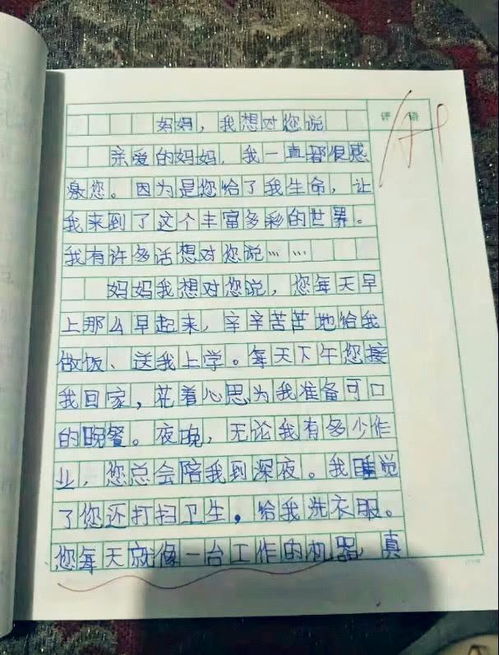 妈妈，我想对您说
评语
亲爱的妈妈，我一直都很感
激您。因为是您给了我生命，让
我来到了这个丰富多彩的世界。
我有许多话想对您说……
妈妈我想对您说，您每天早
上那么早起来，辛辛苦苦地给我
做饭、送我上学。每天下午您接
我回家，花着心思为我准备可口
的晚餐。夜晚，无论我有多少作
业，您总会陪我到深夜。我睡觉
了您还打扫卫生，给我洗衣服。
您每天就像一台工作的机器，真